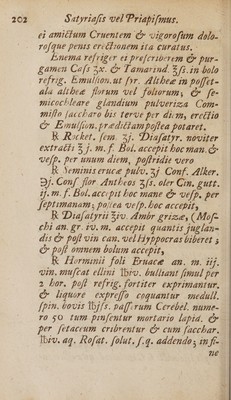 202 Satyriasis vel Priapismus.
ei amictum Cruentem & vigorosum dolo-
rosque penis erectionem ita curatus.
Enema refriger et prescriberem & pur-
gamen Cass ʒx. & Tamarind. ʒſs. in bolo
refrig. Emulsion. ut syr. Altheæ in posset-
ala altheæ florum vel foliorum, & se-
micochleare glandium pulveriza Com-
misto saccharo bis terve per diem, erectio
& Emulsion. prædictam postea potaret.
℞ Rocket. sem. ʒj. Diasatyr. noviter
extracti ʒj. m. f. Bol. accepit hoc man. &
vesp. per unum diem, postridie vero
℞ Seminis erucæ pulv. ʒj Conf. Alker.
℈j. Conf flor Antheos ʒſs. oler Cin. gutt.
ij. m. f. Bol. accepit hoc mane & vesp. per
septimanam; postea vesp. hoc accepit,
℞ Diasatyrii ʒiv. Ambr grizæ, (Mos-
chi an. gr. iv. m. accepit quantis juglan-
dis & post vin can. vel Hyppocras biberet;
& post omnem bolum accepit,
℞ Horminii foli Eruacæ an. m. iij.
vin. muscat ellini ℔iv. bulliant simul per
2 hor. post refrig. fortiter exprimantur,
& liquore expresso coquantur medull.
spin. bovis ℔jſs. passerum Cerebel. nume-
ro 50 tum pinsentur mortario lapid. &
per setaceum cribrentur & cum sacchar.
℔iv. aq. Rosat. solut. s.q. addendo; in fi-
ne